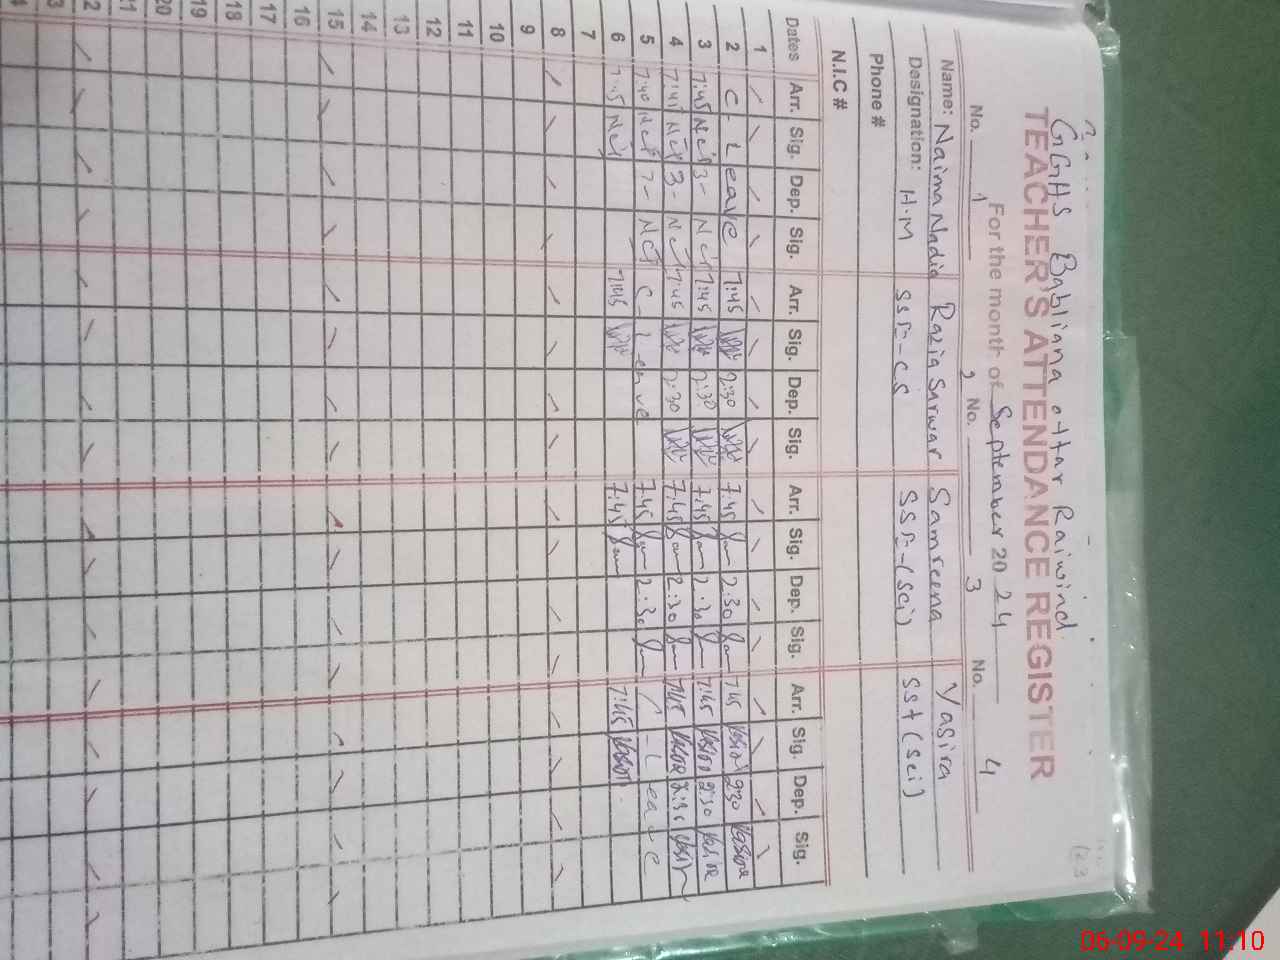 GGHS Babliana ottar Raiwind
TEACHER'S ATTENDANCE REGISTER
For the month of September 2024
No. 1 No. 3 No. 4
Name: Naima Nadia Razia Sarwar Samreena Yasira
Designation: H.M SSE-CS SSE-(Sci) SSt (Sci)
Phone #
N.I.C #
Dates Arr. Sig. Dep. Sig. Arr. Sig. Dep. Sig. Arr. Sig. Dep. Sig. Arr. Sig. Dep. Sig.
1
2 C - Leave 7:45 2:30 7:45 2:30 7:45 2:30
3 7:45 3- 7:45 2:30 7:45 2:30 7:45 2:30
4 7:45 3- 7:45 2:30 7:45 2:30 7:45
5 7:40 7- C - Leave 7:45 2:30 C - Leave
6 7:45 7:45 7:45 7:45
7
8
9
10
11
12
13
14
15
16
17
18
19
20
21
06-09-24 11:10